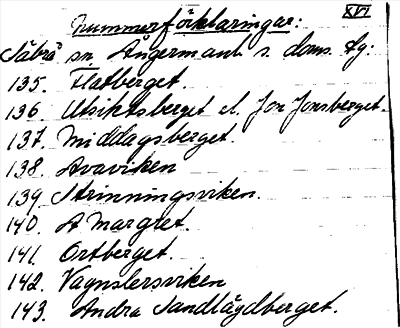 XVI
Nummerförklaringar:
Säbrå sn Ångermanl. s. doms. tg:
135. Flatberget.
136 Utsiktsberget el. Jon Jonsberget.
137. Middagsberget.
138. Avaviken
139 Strinningsviken.
140. A Margtet.
141. Ortberget.
142. Vagnslersviken
143. Andra Sandlägdberget.